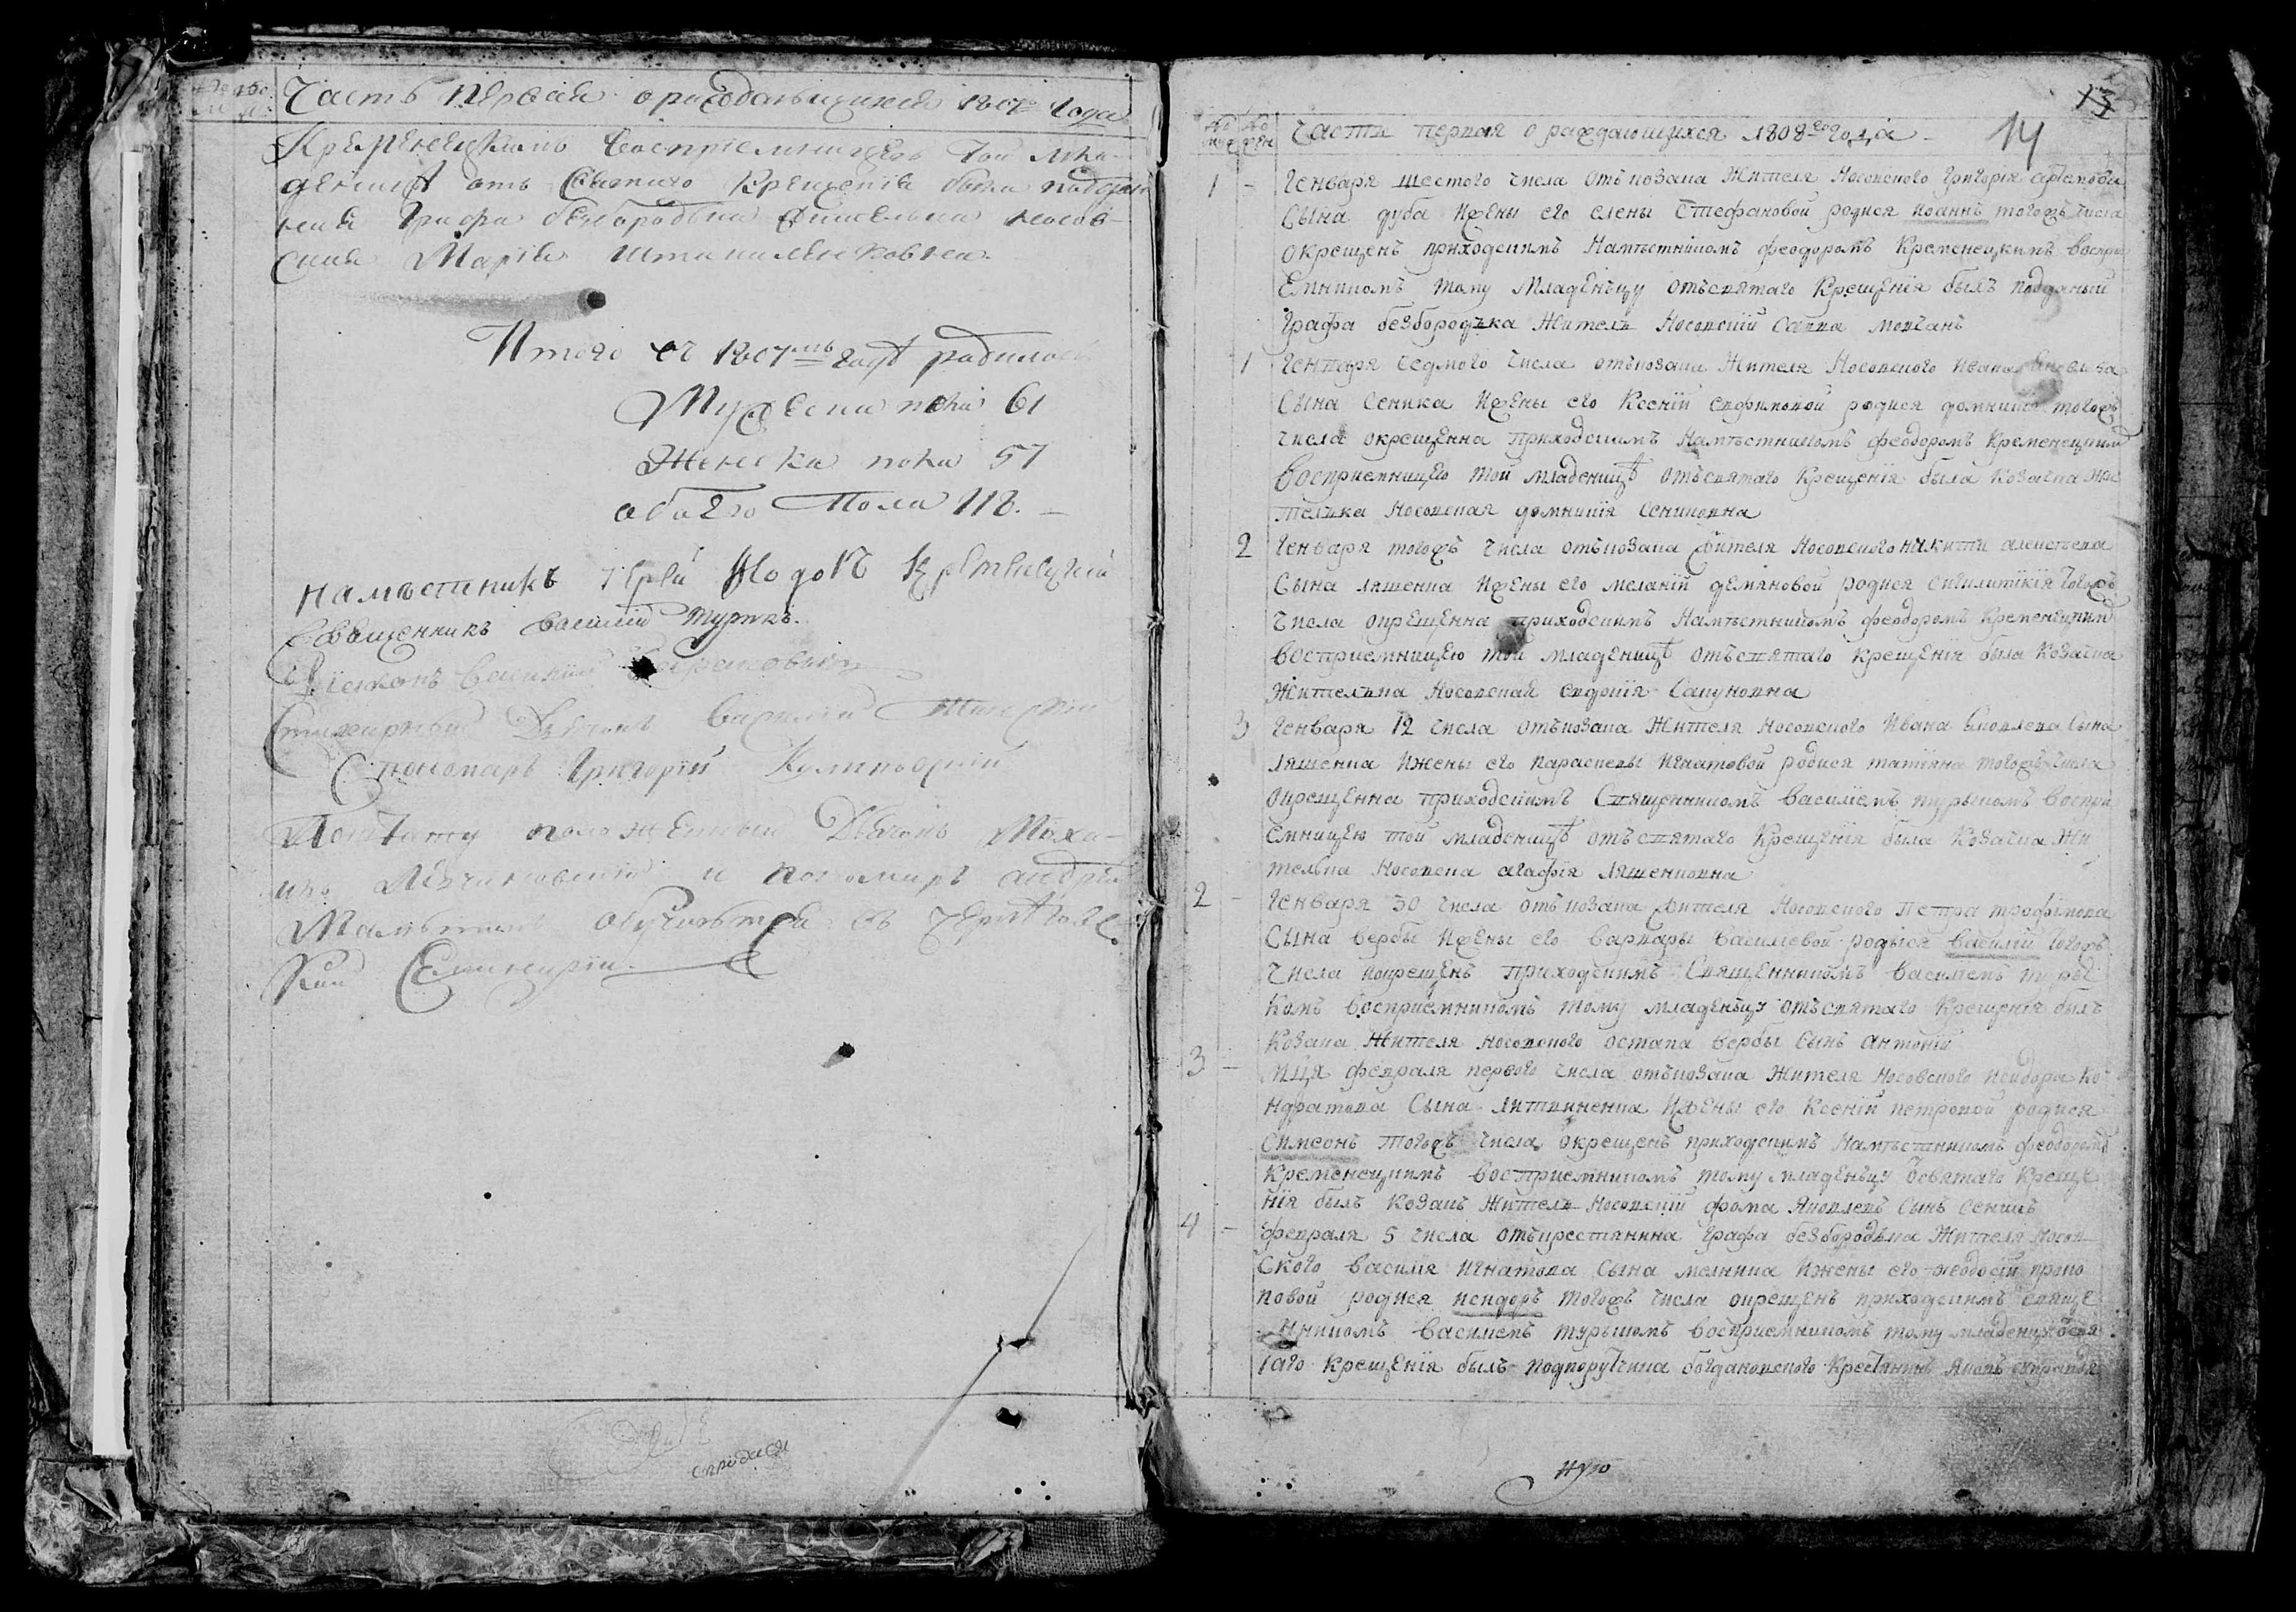 Часть Первая о раждающихся 1807го Года
Кременецкимъ Восприемницею той мла-
деницѣ отъ Святаго Крещенїя была поддан
ная Графа безбородька жителька носов-
ская Марїя
Итого въ 1807мъ годѣ родилось
Мужеска пола 61
Женска пола 57
обоего Пола 118.
намѣстникъ Иерей Кременецкїй
Священникъ василїй Туркъ.
Дїяконъ Василїй
Стихарный Дьячокъ Василїй
Пономаръ Григорїй
положенный Дьячокъ Миха-
илъ и пономаръ андрей
обучаются въ Чернѣгов
кой Семинарїи.
справился
13
14
Части первая о раждающихся 1808го года
1 - Генваря шестого числа отъ козака Жителя Носовского Григорїя
Сына дуба Ижены его елены Стефановой родися Иоаннъ тогожъ числа
окрещенъ приходскимъ Намѣстникомъ феодоромъ Кременецкимъ воспри
Емникомъ тому Младенъцу отъсвятаго Крещенїя былъ подданый
Графа безбородька Житель Носовскїй Савва мовчанъ
1 Генваря седмого числа отъкозака Жителя Носовского Ивана
Сына Сеника Ижены его Ксенїи родися домникїя тогожъ
числа окрещенна приходскимъ Намѣстникомъ феодоромъ Кременецким
восприемницею той младеницѣ отъсвятаго Крещенїя была Козачка жи
телька Носовская домникїя Сениковна
2 Генваря тогожъ числа отъкозака жителя Носовского никиты алексѣева
Сына ляшенка Ижены его меланїи демяновой родися тогожъ
числа окрещенна приходскимъ Намѣстникомъ феодоромъ Кременецким
восприемницею той младеницѣ отъсвятаго крещенїя была Козачка
Жителька Носовская евдокїя
3 Генваря 12 числа отъкозака Жителя Носовского Ивана Яковлева Сына
ляшенка Ижены его параскевы Игнатовой родися татїяна тогожъ числа
окрещенна приходскимъ Священникомъ василїемъ туръкомъ воспри
емницею той младеницѣ отъсвятаго Крещенїя была Козачка Жи
телька Носовска агафїя Ляшенковна
2 - Генваря 30 числа отъкозака жителя Носовского Петра трофимова
Сына вербы Ижены его варвары василїевой родыся василїй тогожъ
числа покрещенъ приходскимъ Священникомъ василїемъ туръ
комъ восприемникомъ тому младенъцу отъсвятаго Крещенїя былъ
Козака Жителя Носовского остапа вербы Сынъ антонїй
3 - Мця февраля первого числа отъкозака Жителя Носовского Исидора Ко
ндратова Сына литвиненка Ижены его Ксенїи петровой родися
Симеонъ тогожъ числа окрещенъ приходскимъ Намѣстникомъ феодоромъ
Кременецкимъ восприемникомъ тому младенъцу Крещє
нїя былъ Козакъ Житель Носовскїй фома Яковлевъ Сынъ Сеникъ
4 - февраля 5 числа отъкрестянина Графа безбородька Жителя Носов
ского василїя Игнатова Сына мелника Ижены его феодосїи проко
повой родися исидоръ тогожъ числа окрещенъ приходскимъ священ
нникомъ василїемъ туръкомъ восприемникомъ тому младенцу
таго Крещенїя былъ подпоручика богдановского Крестянинъ
ную